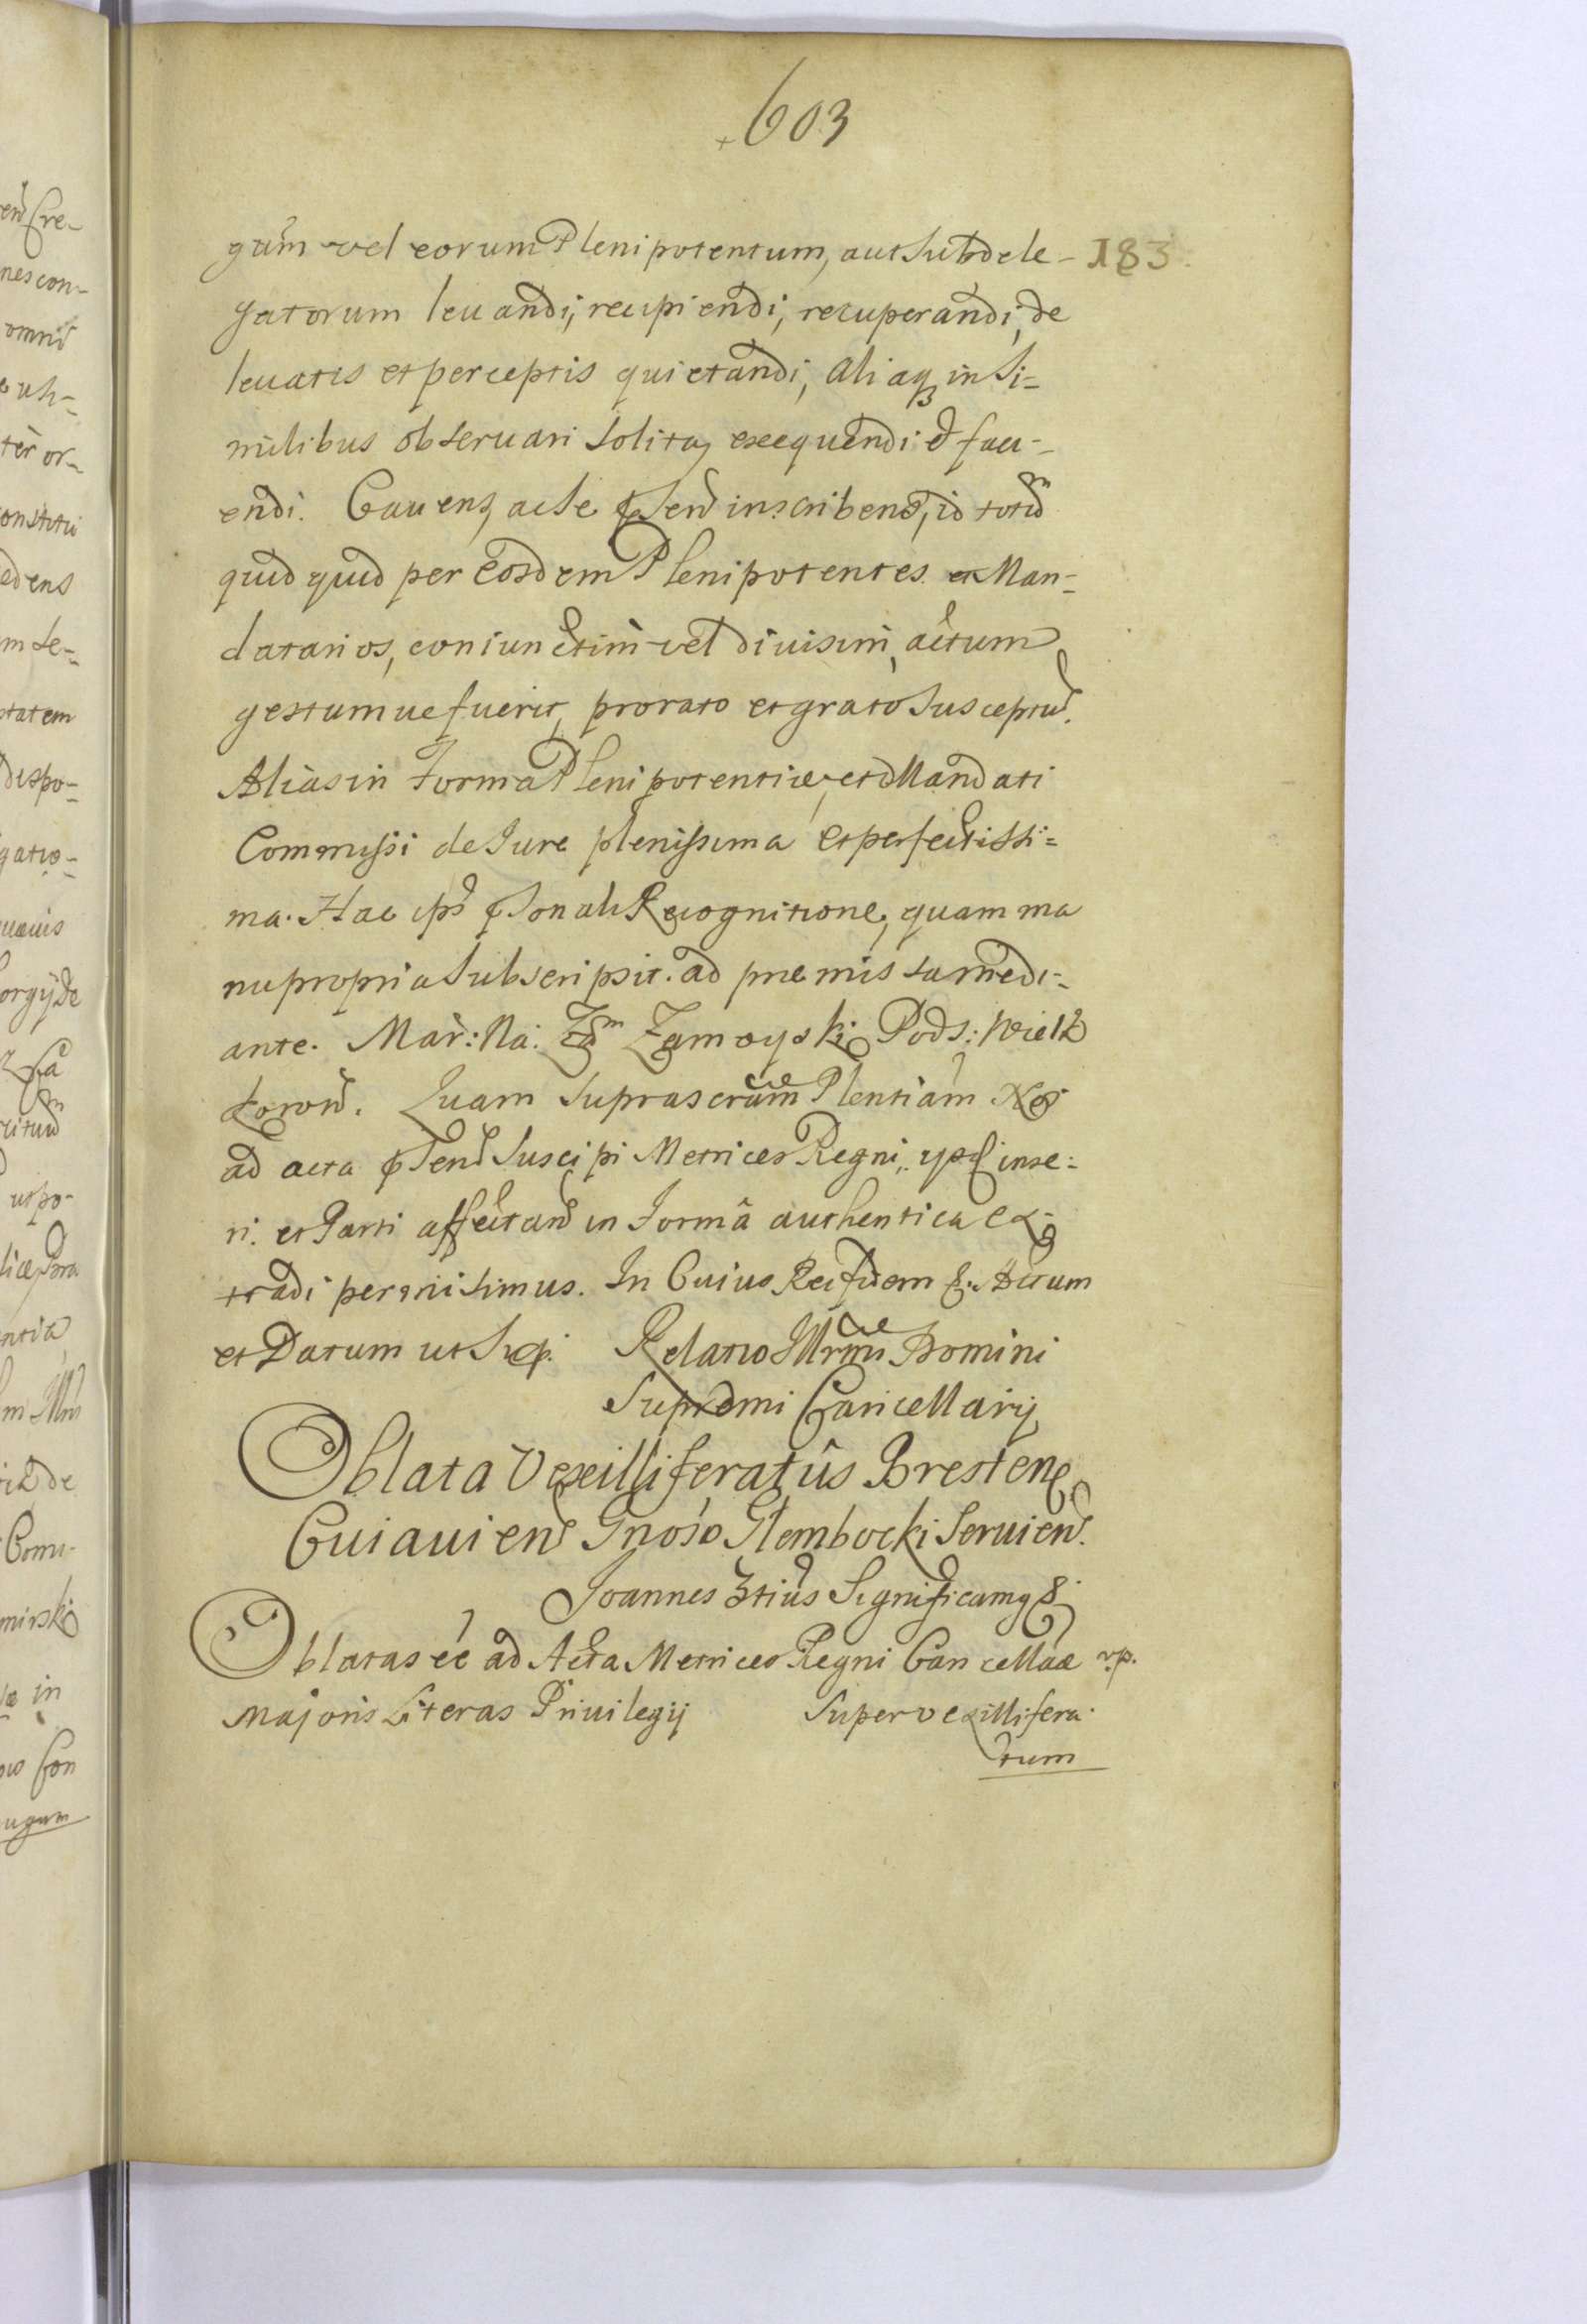 603
183
gum̄ vel eorum Plenipotentum, aut Subdele-
gatorum leuandi, recipiendi, recuperandi, de
leuatis et perceptis quietandi, aliaqꝫ in Si=
milibus obseruari Solita, exequendi & faci-
endi. Cauens, ac Se inscribens, id totum
quidquid per Eosdem Plenipotentes et Man=
datarios, coniunctim vel diuisim, actum
gestumue fuerit, pro rato et grato Susceptur.
Alias in Forma Plenipotentiæ, et Mandati
Commissi de Jure plenissima et perfectissi=
ma. Hac ips ꝑsonali Recognitione, quam ma
nu propria Subscripsit. ad præmissa medi=
ante. Mar: Na: Zamoyski Pods: Wielk
Koron. Quam Suprascram Plentiam Nos
ad acta Suscipi Metrices Regni, inse=
ri. et Parti affectan in Formâ authentica ex=
tradi permisimus. In Cuius Rei fidem &. Actum
et Datum ut Supr. Relatio Illrmi Domini
Supremi Cancellarij
Oblata Vexilliferatûs Bresten
Cuiauien Gnoso Glembocki Seruien.
Joannes 3tius Significamꝰ &
Oblatas eē ad Acta Metrices Regni Cancellaæ
Majoris Literas Priuilegij Super vexillifera
tum
en Cre-
nes con-
omni
ter or-
edens
m Se-
tatem
dispo-
gatio-
uæuis
orgij de
ut po-
ntia
de
mirski
in
Con
ugum